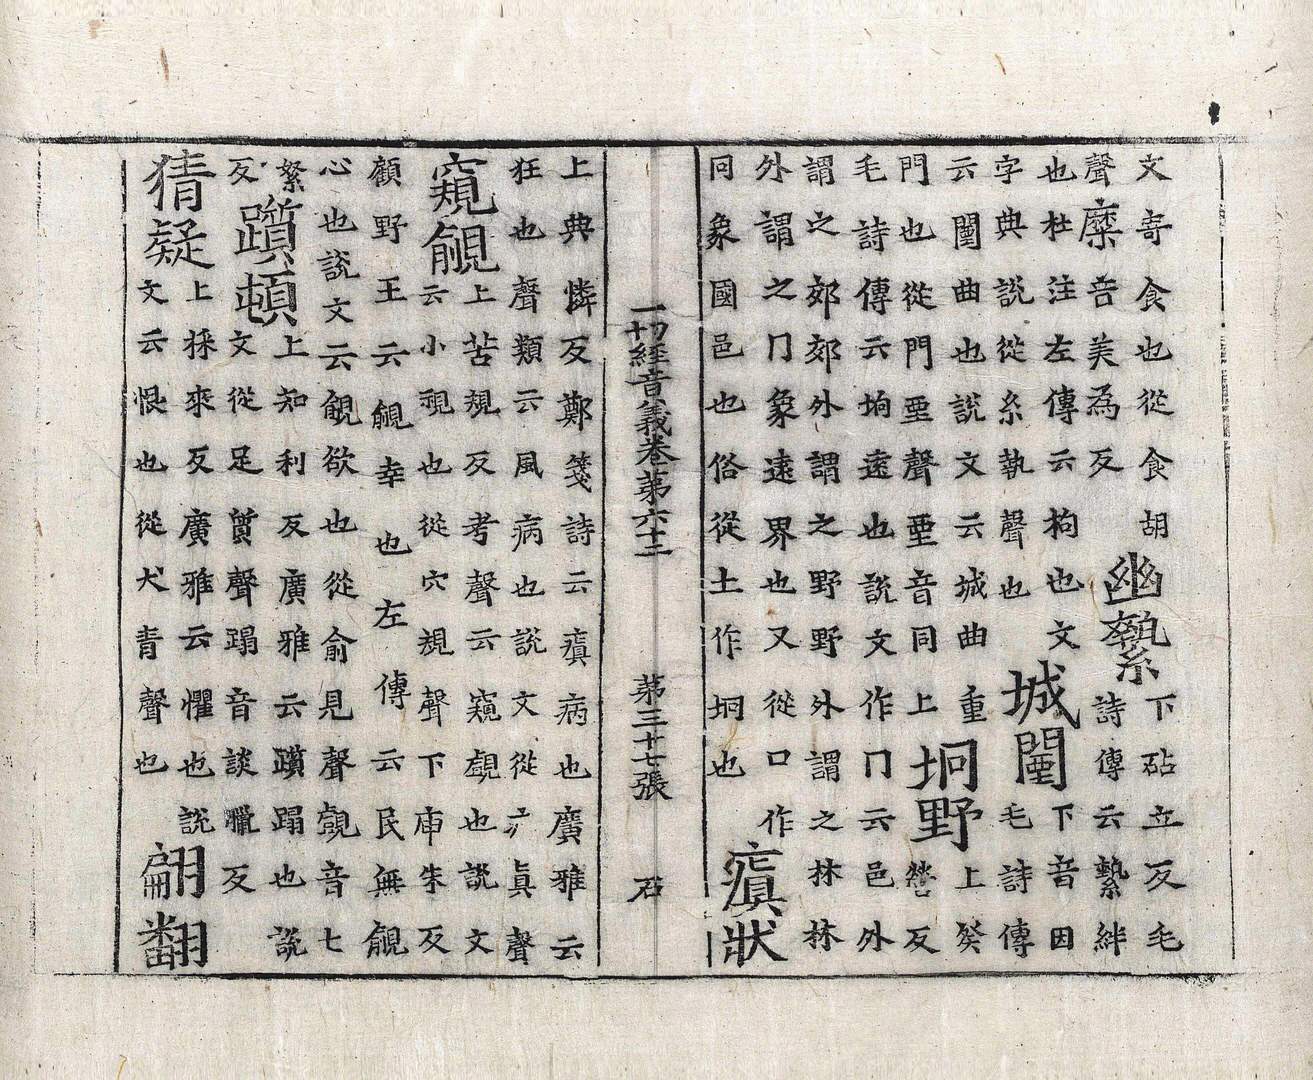 文寄食也從食胡
聲糜音美為反
幽縶
下砧立反毛
詩傳云縶絆
也杜注左傳云拘也文
字典說從糸執聲也
城闉
下音因
毛詩傳
云闉曲也說文云城曲重
門也從門垔聲垔音同上
坰野
上癸
營反
毛詩傳云坰遠也說文作冂云邑外
謂之郊郊外謂之野野外謂之林林
外謂之冂象遠界也又從口作
同象國邑也俗從土作坰也
瘨狀
一切經音義卷第六十二 第三十七張 石
上典憐反鄭箋詩云瘨病也廣雅云
狂也聲類云風病也說文從疒眞聲
窺覦
上苦規反考聲云窺覷也說文
云小視也從穴規聲下庾朱反
顧野王云覦幸也左傳云民無覦
心也說文云覦欲也從俞見聲覷音七
絮
反
躓頓
上知利反廣雅云躓蹋也說
文從足質聲蹋音談臘反
猜疑
上採來反廣雅云懼也說
文云恨也從犬青聲也
翩翻